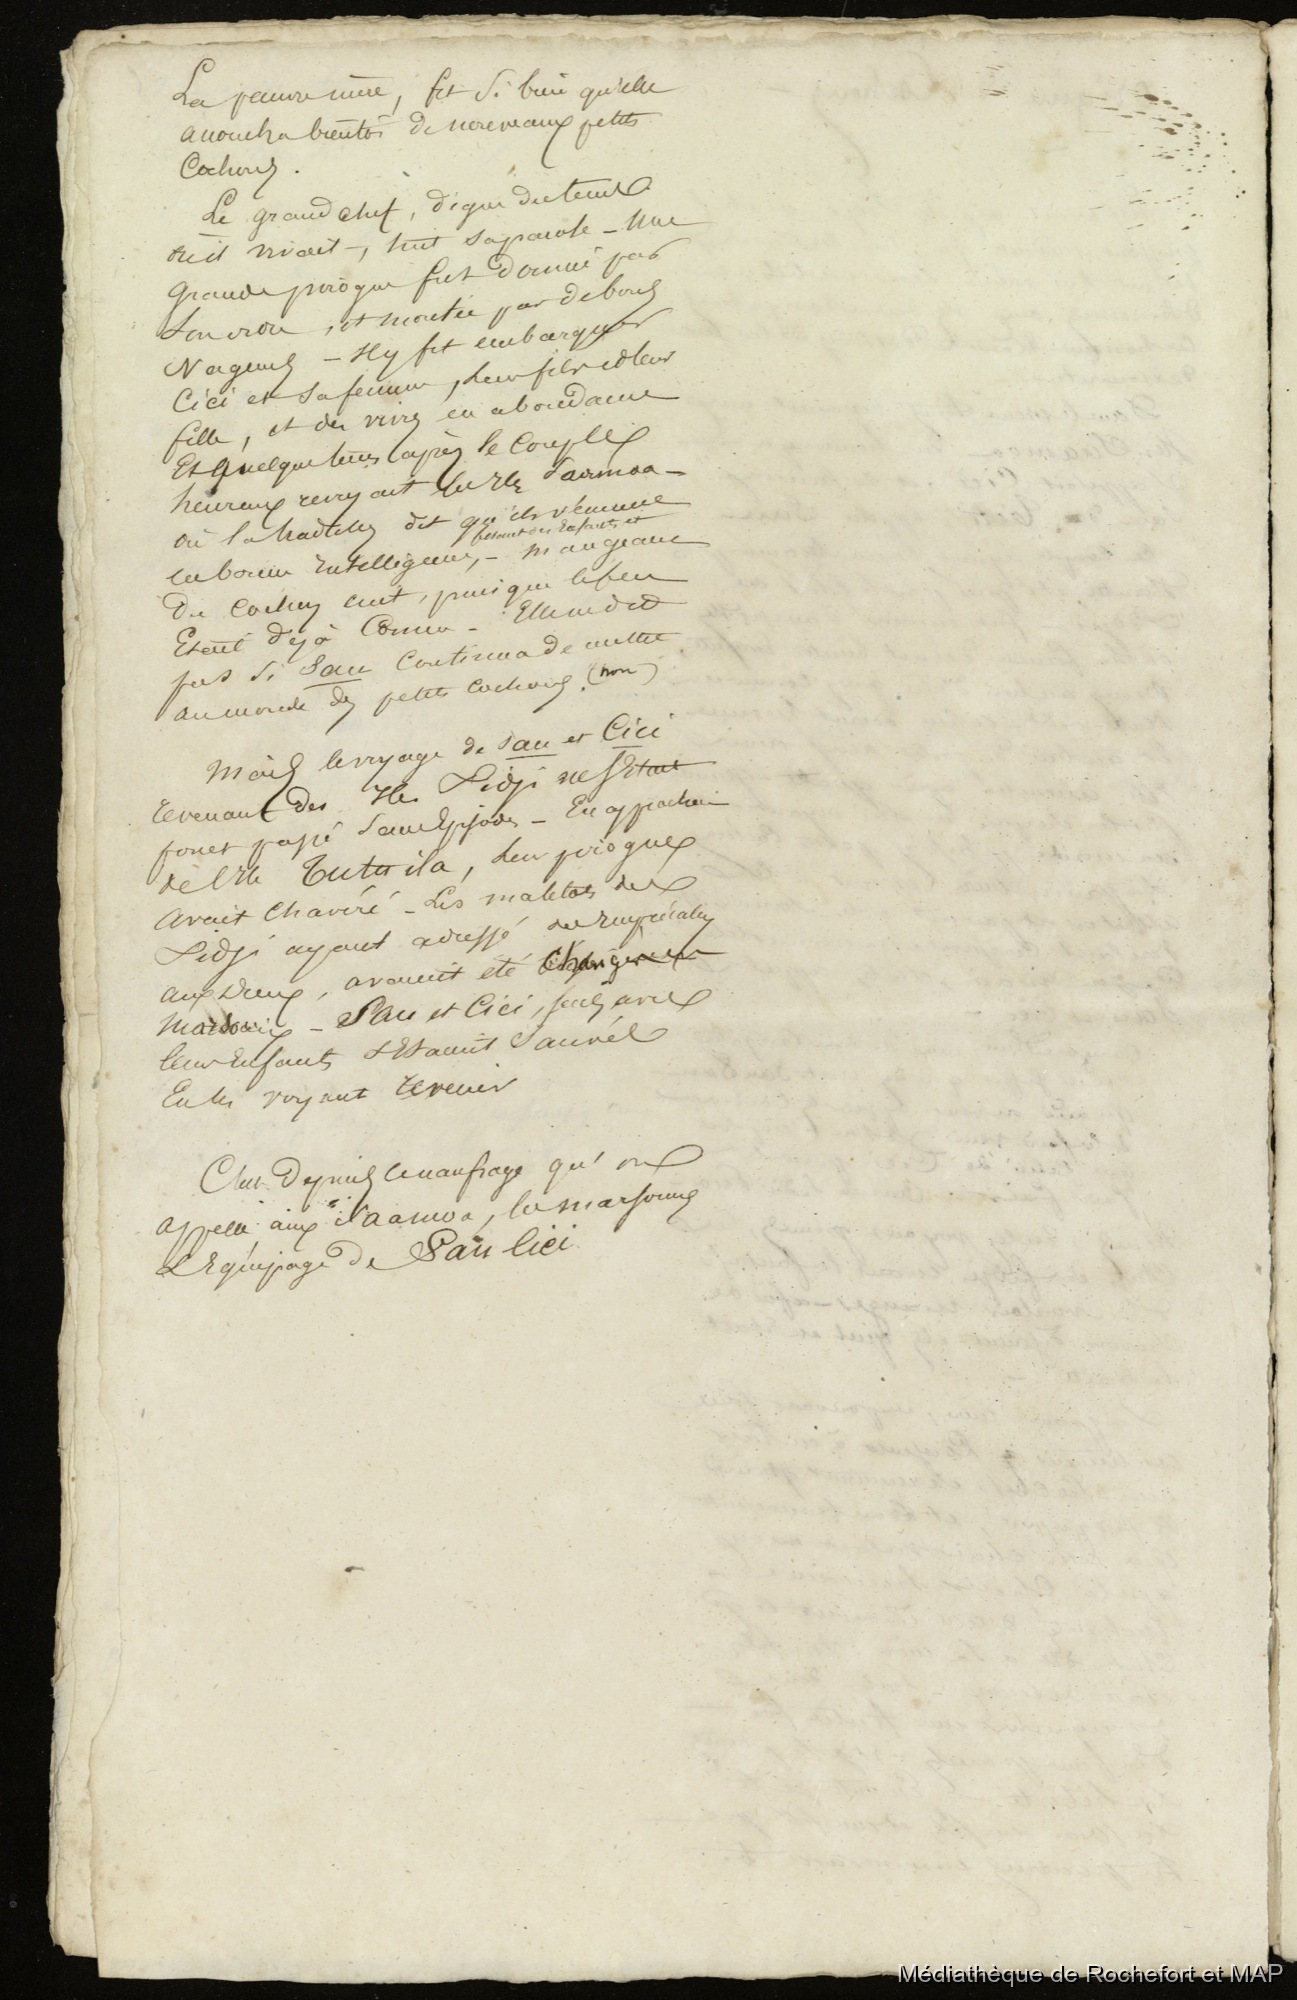 La pauvre mère, fit si bien qu'elle
accoucha bientôt de nouveaux petits
Cochons.
Le grand chef, digne du tems
où il vivait, tint sa parole - Une
grande pirogue fut donnée par
son ordre, et montée par de bons
Nageurs - Il y fit embarquer
Cici et sa femme, leur fils et leur
fille, et des vivres en abondance
Et quelque tems après le Couple
heureux revoyait les Iles Samoa -
où la tradition dit qu'ils vécurent
fesant des Enfants et
en bonne Intelligence, - mangeant
du Cochon cuit, puisque le feu
Etait déjà Connu - Elle ne dit
pas si Sau Continua de mettre
au monde des petits cochons. (non)
Mais le voyage de Sau et Cici
revenant des Iles Fidji ne s'Etait
passé sans Episodes - En approchant
de l'Ile Tutuila, leur pirogue
avait chaviré - Les matelots de
Fidji ayant adressé des Imprécations
aux dieux, avaient été Changés en
Marsouins - Sau et Cici, seuls avec
leurs Enfants s'Etaient sauvés
En les voyant revenir
C'est depuis ce naufrage qu'on
appelle ainsi à Samoa, les marsouins
L'Equipage de Sau Cici
Médiathèque de Rochefort et MAP